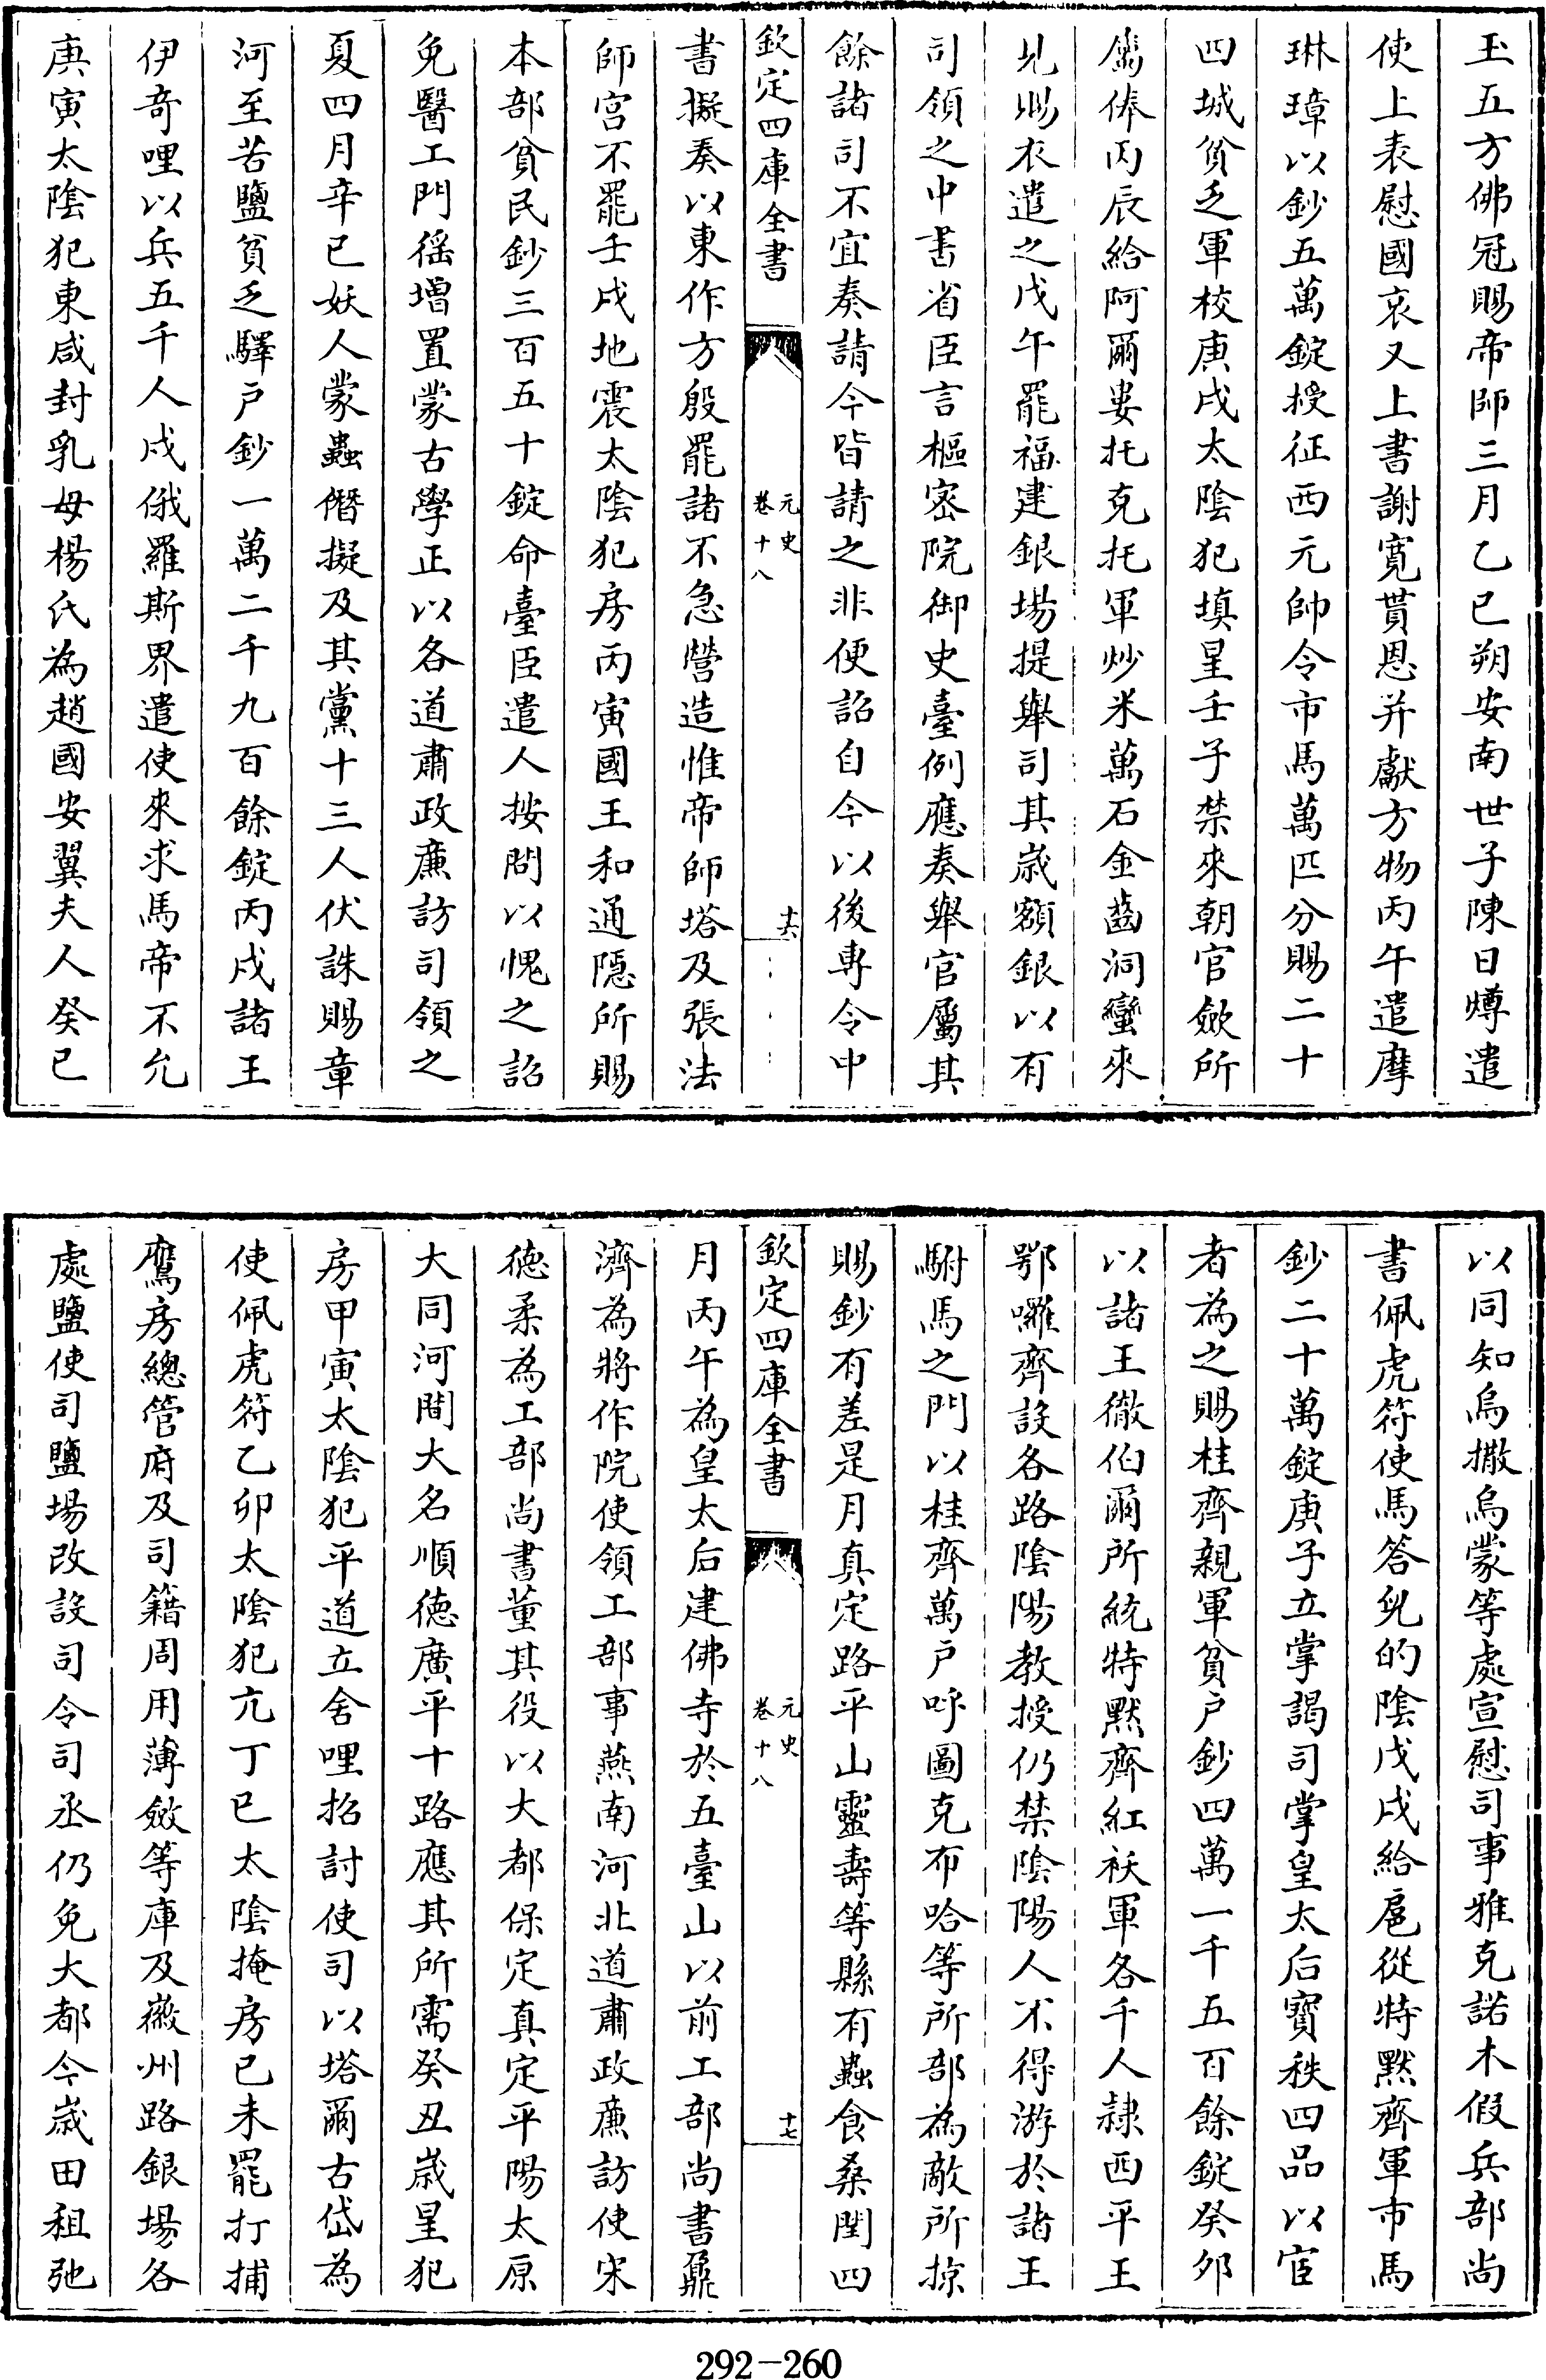 玉五方佛冠賜帝師三月乙巳朔安南世子陳日燇遣
使上表慰國哀又上書謝寛貰恩并獻方物丙午遣摩
琳璋以鈔五萬錠授征西元帥令市馬萬匹分賜二十
四城貧乏軍校庚戌太陰犯填星壬子禁來朝官斂所
屬俸丙辰給阿爾婁托克托軍炒米萬石金齒洞蠻來
見賜衣遣之戊午罷福建銀塲提舉司其歳額銀以有
司領之中書省臣言樞密院御史臺例應奏舉官屬其
餘諸司不宜奏請今皆請之非便詔自今以後專令中
欽定四庫全書
元史
卷十八
十六
書擬奏以東作方殷罷諸不急營造惟帝師塔及張法
師宫不罷壬戌地震太陰犯房丙寅國王和通隠所賜
本部貧民鈔三百五十錠命臺臣遣人按問以愧之詔
免醫工門徭增置蒙古學正以各道肅政亷訪司領之
夏四月辛巳妖人蒙蟲僭擬及其黨十三人伏誅賜章
河至苦鹽貧乏驛户鈔一萬二千九百餘錠丙戌諸王
伊奇哩以兵五千人戍俄羅斯界遣使來求馬帝不允
庚寅太陰犯東咸封乳母楊氏為趙國安翼夫人癸巳
以同知烏撒烏蒙等處宣慰司事雅克諾木假兵部尚
書佩虎符使馬答兒的陰戊戌給扈從特黙齊軍市馬
鈔二十萬錠庚子立掌謁司掌皇太后寶秩四品以宦
者為之賜桂齊親軍貧户鈔四萬一千五百餘錠癸夘
以諸王徹伯爾所統特黙齊紅袄軍各千人隷西平王
鄂囉齊設各路陰陽教授仍禁陰陽人不得游於諸王
駙馬之門以桂齊萬户呼圖克布哈等所部為敵所掠
賜鈔有差是月真定路平山靈壽等縣有蟲食桑閏四
欽定四庫全書
元史
卷十八
十七
月丙午為皇太后建佛寺於五臺山以前工部尚書鼐
濟為將作院使領工部事燕南河北道肅政亷訪使宋
德柔為工部尚書董其役以大都保定真定平陽太原
大同河間大名順德廣平十路應其所需癸丑歳星犯
房甲寅太陰犯平道立舍哩招討使司以塔爾古岱為
使佩虎符乙卯太陰犯亢丁巳太陰掩房己未罷打捕
鷹房總管府及司籍周用薄斂等庫及徽州路銀塲各
處鹽使司鹽塲改設司令司丞仍免大都今歳田租弛
292-260